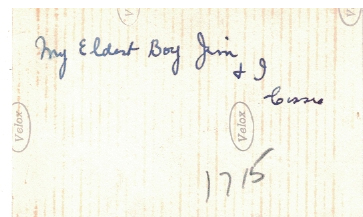 My Eldest Boy Jim
& I
Cissie
Velox
Velox
1715